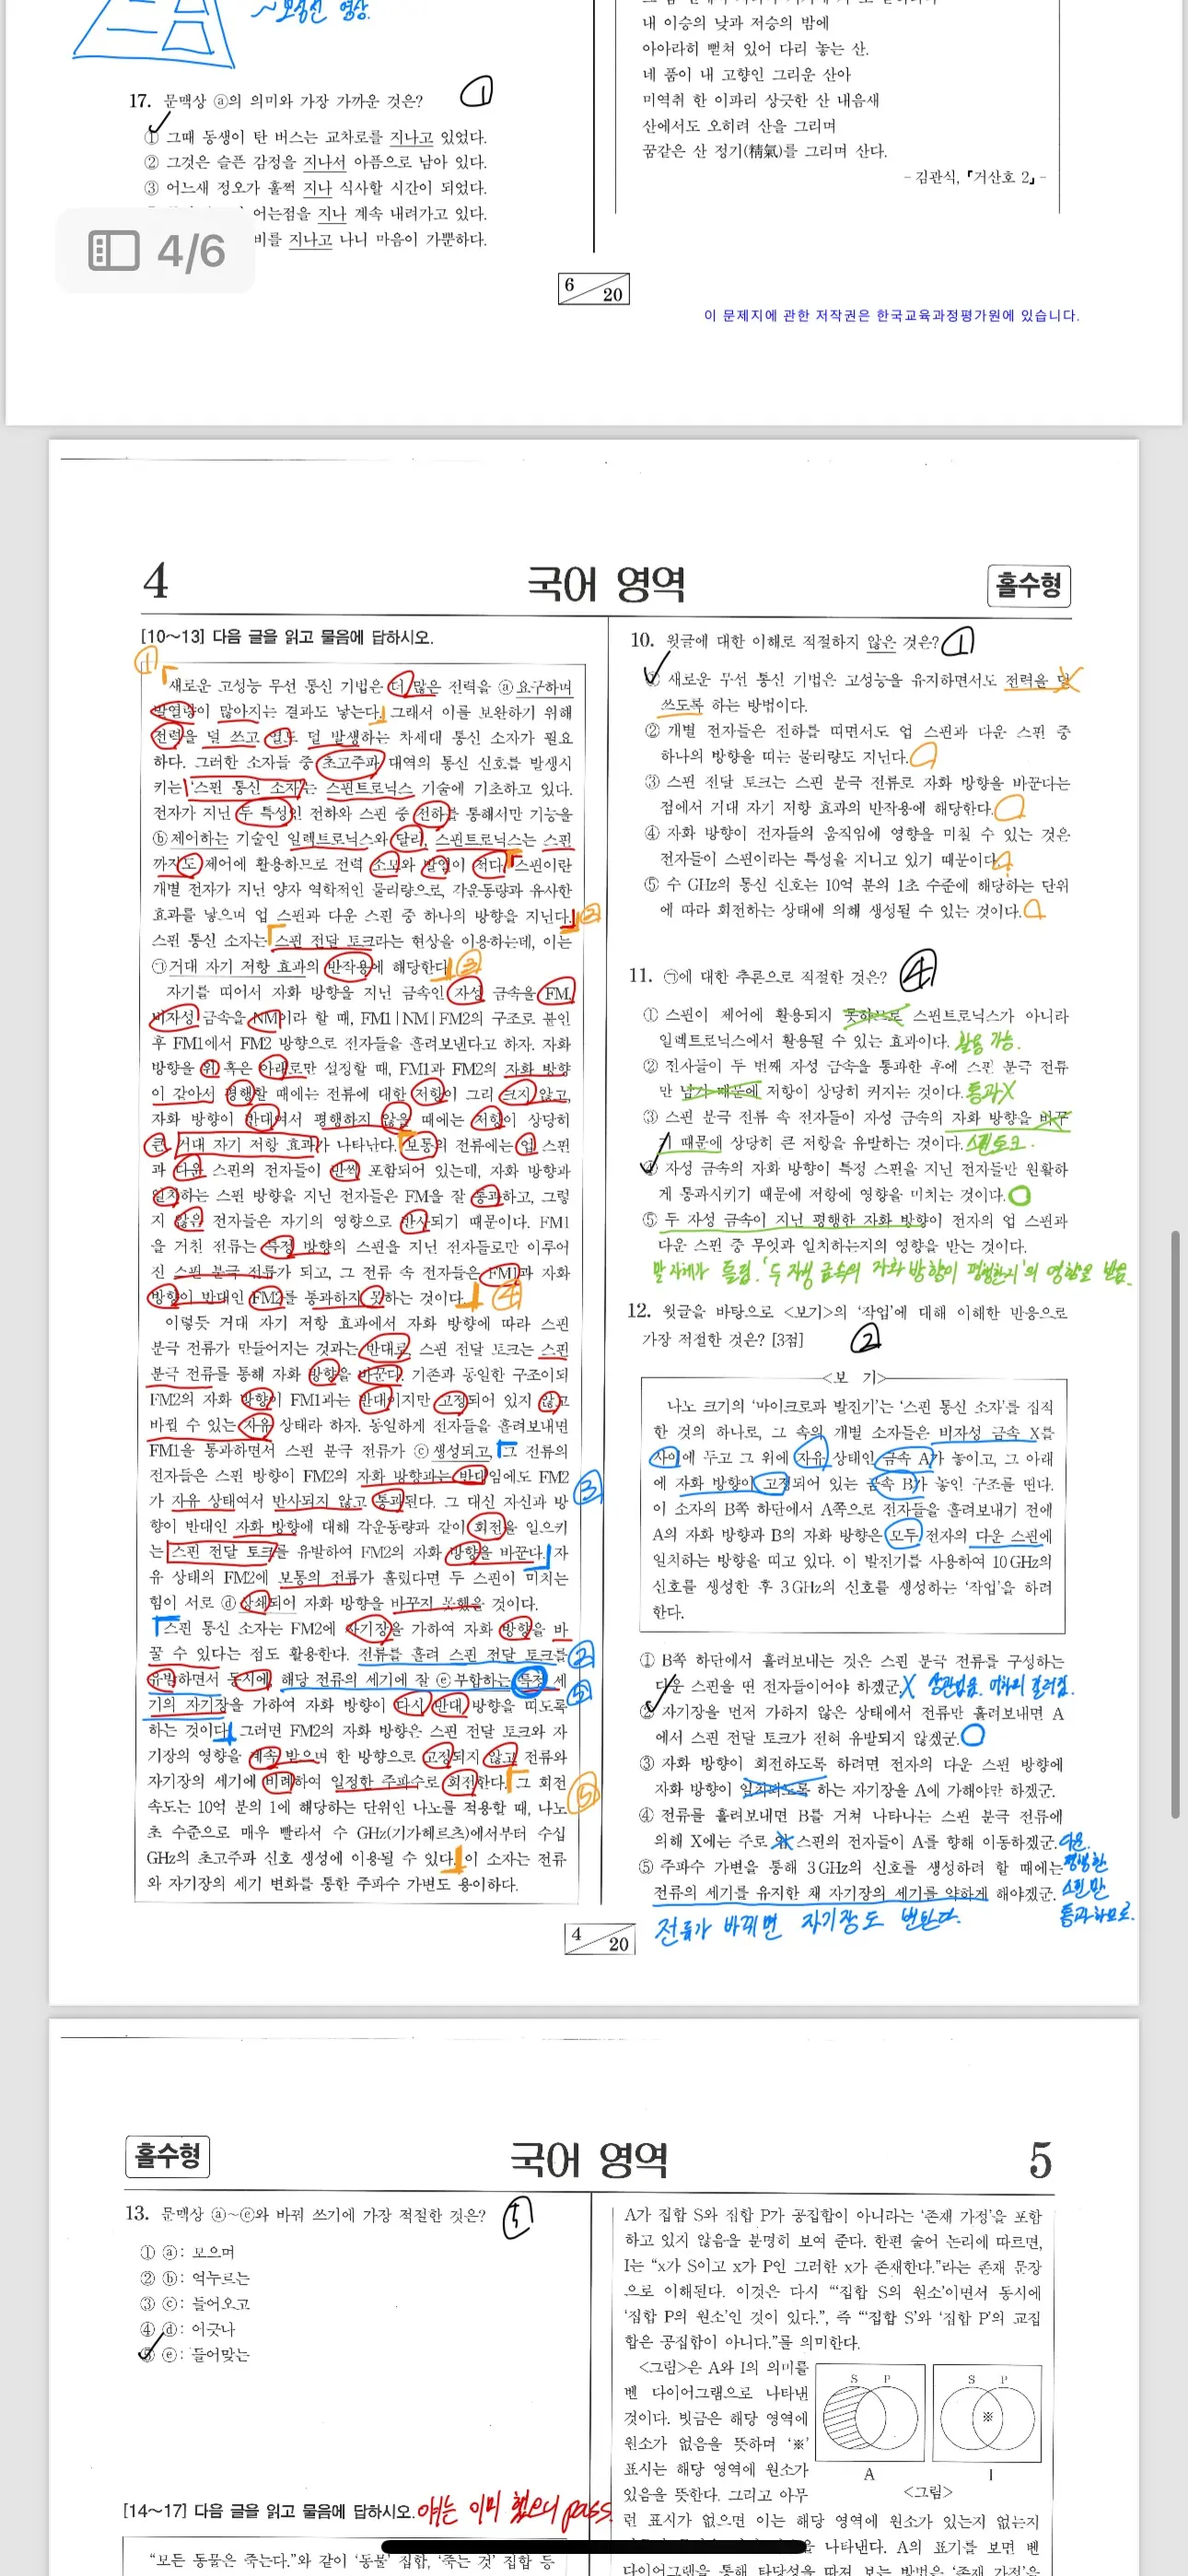 ~모성신 영상.
17. 문맥상 ⓐ의 의미와 가장 가까운 것은? ①
① 그때 동생이 탄 버스는 교차로를 지나고 있었다.
② 그것은 슬픈 감정을 지나서 아픔으로 남아 있다.
③ 어느새 정오가 훌쩍 지나 식사할 시간이 되었다.
어는점을 지나 계속 내려가고 있다.
비를 지나고 나니 마음이 가뿐하다.
4/6
내 이승의 낮과 저승의 밤에
아아라히 뻗쳐 있어 다리 놓는 산.
네 품이 내 고향인 그리운 산아
미역취 한 이파리 상긋한 산 내음새
산에서도 오히려 산을 그리며
꿈같은 산 정기(精氣)를 그리며 산다.
- 김관식, 「거산호 2」 -
6 20
이 문제지에 관한 저작권은 한국교육과정평가원에 있습니다.
4 국어 영역 홀수형
[10~13] 다음 글을 읽고 물음에 답하시오.
①
새로운 고성능 무선 통신 기법은 더 많은 전력을 ⓐ요구하며
발열량이 많아지는 결과도 낳는다. 그래서 이를 보완하기 위해
전력을 덜 쓰고 열도 덜 발생하는 차세대 통신 소자가 필요
하다. 그러한 소자들 중 초고주파 대역의 통신 신호를 발생시
키는 '스핀 통신 소자'는 스핀트로닉스 기술에 기초하고 있다.
전자가 지닌 두 특성인 전하와 스핀 중 전하를 통해서만 기능을
ⓑ제어하는 기술인 일렉트로닉스와 달리, 스핀트로닉스는 스핀
까지도 제어에 활용하므로 전력 소모와 발열이 적다. 스핀이란
개별 전자가 지닌 양자 역학적인 물리량으로, 각운동량과 유사한
효과를 낳으며 업 스핀과 다운 스핀 중 하나의 방향을 지닌다. ②
스핀 통신 소자는 스핀 전달 토크라는 현상을 이용하는데, 이는
㉠거대 자기 저항 효과의 반작용에 해당한다. ③
자기를 띠어서 자화 방향을 지닌 금속인 자성 금속을 FM,
비자성 금속을 NM이라 할 때, FM1|NM|FM2의 구조로 붙인
후 FM1에서 FM2 방향으로 전자들을 흘려보낸다고 하자. 자화
방향을 위 혹은 아래로만 설정할 때, FM1과 FM2의 자화 방향
이 같아서 평행할 때에는 전류에 대한 저항이 그리 크지 않고,
자화 방향이 반대여서 평행하지 않을 때에는 저항이 상당히
큰 거대 자기 저항 효과가 나타난다. 보통의 전류에는 업 스핀
과 다운 스핀의 전자들이 반씩 포함되어 있는데, 자화 방향과
일치하는 스핀 방향을 지닌 전자들은 FM을 잘 통과하고, 그렇
지 않은 전자들은 자기의 영향으로 반사되기 때문이다. FM1
을 거친 전류는 특정 방향의 스핀을 지닌 전자들로만 이루어
진 스핀 분극 전류가 되고, 그 전류 속 전자들은 FM1과 자화
방향이 반대인 FM2를 통과하지 못하는 것이다. ④
이렇듯 거대 자기 저항 효과에서 자화 방향에 따라 스핀
분극 전류가 만들어지는 것과는 반대로, 스핀 전달 토크는 스핀
분극 전류를 통해 자화 방향을 바꾼다. 기존과 동일한 구조이되
FM2의 자화 방향이 FM1과는 반대이지만 고정되어 있지 않고
바뀔 수 있는 자유 상태라 하자. 동일하게 전자들을 흘려보내면
FM1을 통과하면서 스핀 분극 전류가 ⓒ생성되고, 그 전류의
전자들은 스핀 방향이 FM2의 자화 방향과는 반대임에도 FM2
가 자유 상태여서 반사되지 않고 통과된다. 그 대신 자신과 방 ③
향이 반대인 자화 방향에 대해 각운동량과 같이 회전을 일으키
는 스핀 전달 토크를 유발하여 FM2의 자화 방향을 바꾼다. 자
유 상태의 FM2에 보통의 전류가 흘렀다면 두 스핀이 미치는
힘이 서로 ⓓ상쇄되어 자화 방향을 바꾸지 못했을 것이다.
스핀 통신 소자는 FM2에 자기장을 가하여 자화 방향을 바
꿀 수 있다는 점도 활용한다. 전류를 흘려 스핀 전달 토크를 ②
유발하면서 동시에, 해당 전류의 세기에 잘 ⓔ부합하는 특정 세 ⑤
기의 자기장을 가하여 자화 방향이 다시 반대 방향을 띠도록
하는 것이다. 그러면 FM2의 자화 방향은 스핀 전달 토크와 자
기장의 영향을 계속 받으며 한 방향으로 고정되지 않고 전류와
자기장의 세기에 비례하여 일정한 주파수로 회전한다. 그 회전 ⑤
속도는 10억 분의 1에 해당하는 단위인 나노를 적용할 때, 나노
초 수준으로 매우 빨라서 수 GHz(기가헤르츠)에서부터 수십
GHz의 초고주파 신호 생성에 이용될 수 있다. 이 소자는 전류
와 자기장의 세기 변화를 통한 주파수 가변도 용이하다.
10. 윗글에 대한 이해로 적절하지 않은 것은? ①
① 새로운 무선 통신 기법은 고성능을 유지하면서도 전력을 덜
쓰도록 하는 방법이다.
② 개별 전자들은 전하를 띠면서도 업 스핀과 다운 스핀 중
하나의 방향을 띠는 물리량도 지닌다.
③ 스핀 전달 토크는 스핀 분극 전류로 자화 방향을 바꾼다는
점에서 거대 자기 저항 효과의 반작용에 해당한다.
④ 자화 방향이 전자들의 움직임에 영향을 미칠 수 있는 것은
전자들이 스핀이라는 특성을 지니고 있기 때문이다.
⑤ 수 GHz의 통신 신호는 10억 분의 1초 수준에 해당하는 단위
에 따라 회전하는 상태에 의해 생성될 수 있는 것이다.
11. ㉠에 대한 추론으로 적절한 것은? ④
① 스핀이 제어에 활용되지 못하므로 스핀트로닉스가 아니라
일렉트로닉스에서 활용될 수 있는 효과이다. 활용 가능.
② 전자들이 두 번째 자성 금속을 통과한 후에 스핀 분극 전류
만 남기 때문에 저항이 상당히 커지는 것이다. 통과X
③ 스핀 분극 전류 속 전자들이 자성 금속의 자화 방향을 바꾸
기 때문에 상당히 큰 저항을 유발하는 것이다. 스핀토크.
④ 자성 금속의 자화 방향이 특정 스핀을 지닌 전자들만 원활하
게 통과시키기 때문에 저항에 영향을 미치는 것이다.
⑤ 두 자성 금속이 지닌 평행한 자화 방향이 전자의 업 스핀과
다운 스핀 중 무엇과 일치하는지의 영향을 받는 것이다.
말 자체가 틀림. '두 자성 금속의 자화 방향이 평행한지'의 영향을 받음.
12. 윗글을 바탕으로 <보기>의 '작업'에 대해 이해한 반응으로
가장 적절한 것은? [3점] ②
<보 기>
나노 크기의 '마이크로파 발진기'는 '스핀 통신 소자'를 집적
한 것의 하나로, 그 속의 개별 소자들은 비자성 금속 X를
사이에 두고 그 위에 자유 상태인 금속 A가 놓이고, 그 아래
에 자화 방향이 고정되어 있는 금속 B가 놓인 구조를 띤다.
이 소자의 B쪽 하단에서 A쪽으로 전자들을 흘려보내기 전에
A의 자화 방향과 B의 자화 방향은 모두 전자의 다운 스핀에
일치하는 방향을 띠고 있다. 이 발진기를 사용하여 10GHz의
신호를 생성한 후 3GHz의 신호를 생성하는 '작업'을 하려
한다.
① B쪽 하단에서 흘려보내는 것은 스핀 분극 전류를 구성하는
다운 스핀을 띤 전자들이어야 하겠군. X 상관없음. 어차피 걸러짐.
② 자기장을 먼저 가하지 않은 상태에서 전류만 흘려보내면 A
에서 스핀 전달 토크가 전혀 유발되지 않겠군.
③ 자화 방향이 회전하도록 하려면 전자의 다운 스핀 방향에
자화 방향이 일치하도록 하는 자기장을 A에 가해야만 하겠군.
④ 전류를 흘려보내면 B를 거쳐 나타나는 스핀 분극 전류에
의해 X에는 주로 업 스핀의 전자들이 A를 향해 이동하겠군. 다운.
⑤ 주파수 가변을 통해 3GHz의 신호를 생성하려 할 때에는 평행한
전류의 세기를 유지한 채 자기장의 세기를 약하게 해야겠군. 스핀만
전류가 바뀌면 자기장도 변한다. 통과하므로.
4 20
홀수형 국어 영역 5
13. 문맥상 ⓐ~ⓔ와 바꿔 쓰기에 가장 적절한 것은? ⑤
① ⓐ: 모으며
② ⓑ: 억누르는
③ ⓒ: 들어오고
④ ⓓ: 어긋나
⑤ ⓔ: 들어맞는
[14~17] 다음 글을 읽고 물음에 답하시오. 얘는 이미 했으니 pass
"모든 동물은 죽는다."와 같이 '동물' 집합, '죽는 것' 집합 등
A가 집합 S와 집합 P가 공집합이 아니라는 '존재 가정'을 포함
하고 있지 않음을 분명히 보여 준다. 한편 술어 논리에 따르면,
I는 "x가 S이고 x가 P인 그러한 x가 존재한다."라는 존재 문장
으로 이해된다. 이것은 다시 "'집합 S의 원소'이면서 동시에
'집합 P의 원소'인 것이 있다.", 즉 "'집합 S'와 '집합 P'의 교집
합은 공집합이 아니다."를 의미한다.
<그림>은 A와 I의 의미를
벤 다이어그램으로 나타낸
것이다. 빗금은 해당 영역에
원소가 없음을 뜻하며 '※'
표시는 해당 영역에 원소가
있음을 뜻한다. 그리고 아무
S P
S P
※
A I
<그림>
런 표시가 없으면 이는 해당 영역에 원소가 있는지 없는지
을 나타낸다. A의 표기를 보면 벤
다이어그램을 통해 타당성을 따져 보는 방법은 '존재 가정'은